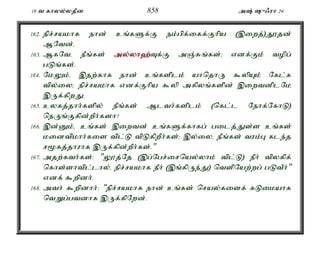 19 வ காலல்லதீன 858 அஷ் ஷுஃரா 26
162. நிச்சயமாக நான் உங்களுக்கு நம்பிக்கைக்குரிய (இறைத்)தூதன் ஆவேன்.
163. ஆகவே, நீங்கள் அல்லாஹ்வுக்கு அஞ்சுங்கள்; எனக்கும் வழிப் படுங்கள்.
164. மேலும், இதற்காக நான் உங்களிடம் யாதொரு கூலியும் கேட்க வில்லை; நிச்சயமாக எனக்குரிய கூலி அகிலங்களின் இறைவனிடமே இருக்கிறது.
165. உலகத்தார்களில் நீங்கள் ஆடவர்களிடம் (கெட்ட நோக்கோடு) நெருங்குகின்றீர்களா?
166. இன்னும், உங்கள் இறைவன் உங்களுக்காகப் படைத்துள்ள உங்கள் மனைவிமார்களை விட்டு விடுகிறீர்கள்; இல்லை, நீங்கள் வரம்பு கடந்த சமூகத்தாராக இருக்கின்றீர்கள்."
167. அதற்கவர்கள்; "லூத்தே (இப்பேச்சையெல்லாம் விட்டு) நீர் விலகிக் கொள்ளாவிட்டால், நிச்சயமாக நீர் (இங்கிருந்து) வெளியேற்றப் படுவீர்" எனக் கூறினர்.
168. அவர் கூறினார்: "நிச்சயமாக நான் உங்கள் செயல்களைக் கடுமையாக வெறுப்பவனாக இருக்கிறேன்.